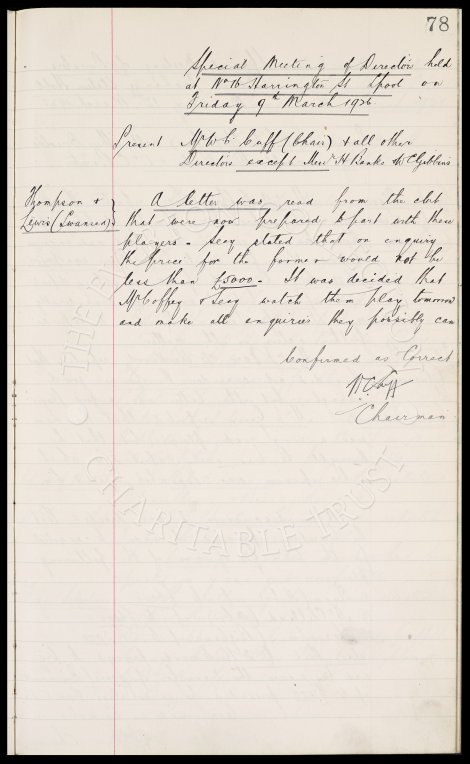 78
Special Meeting of Directors held
at No 16 Harrington St Lpool on
Friday 9th March 1926
Present Mr W C Cuff (Chair) & all other
Directors except Messrs H Banks & W C Gibbins
Thompson & Lewis (Swansea) } A letter was read from the club
that were now prepared to part with these
players - Secy stated that on enquiry
the price for the former would not be
less than £5000 - It was decided that
Mr Coffey & Secy watch them play tomorrow
and make all enquiries they possibly can
Confirmed as Correct
W. C. Cuff
Chairman
CHARITABLE TRUST